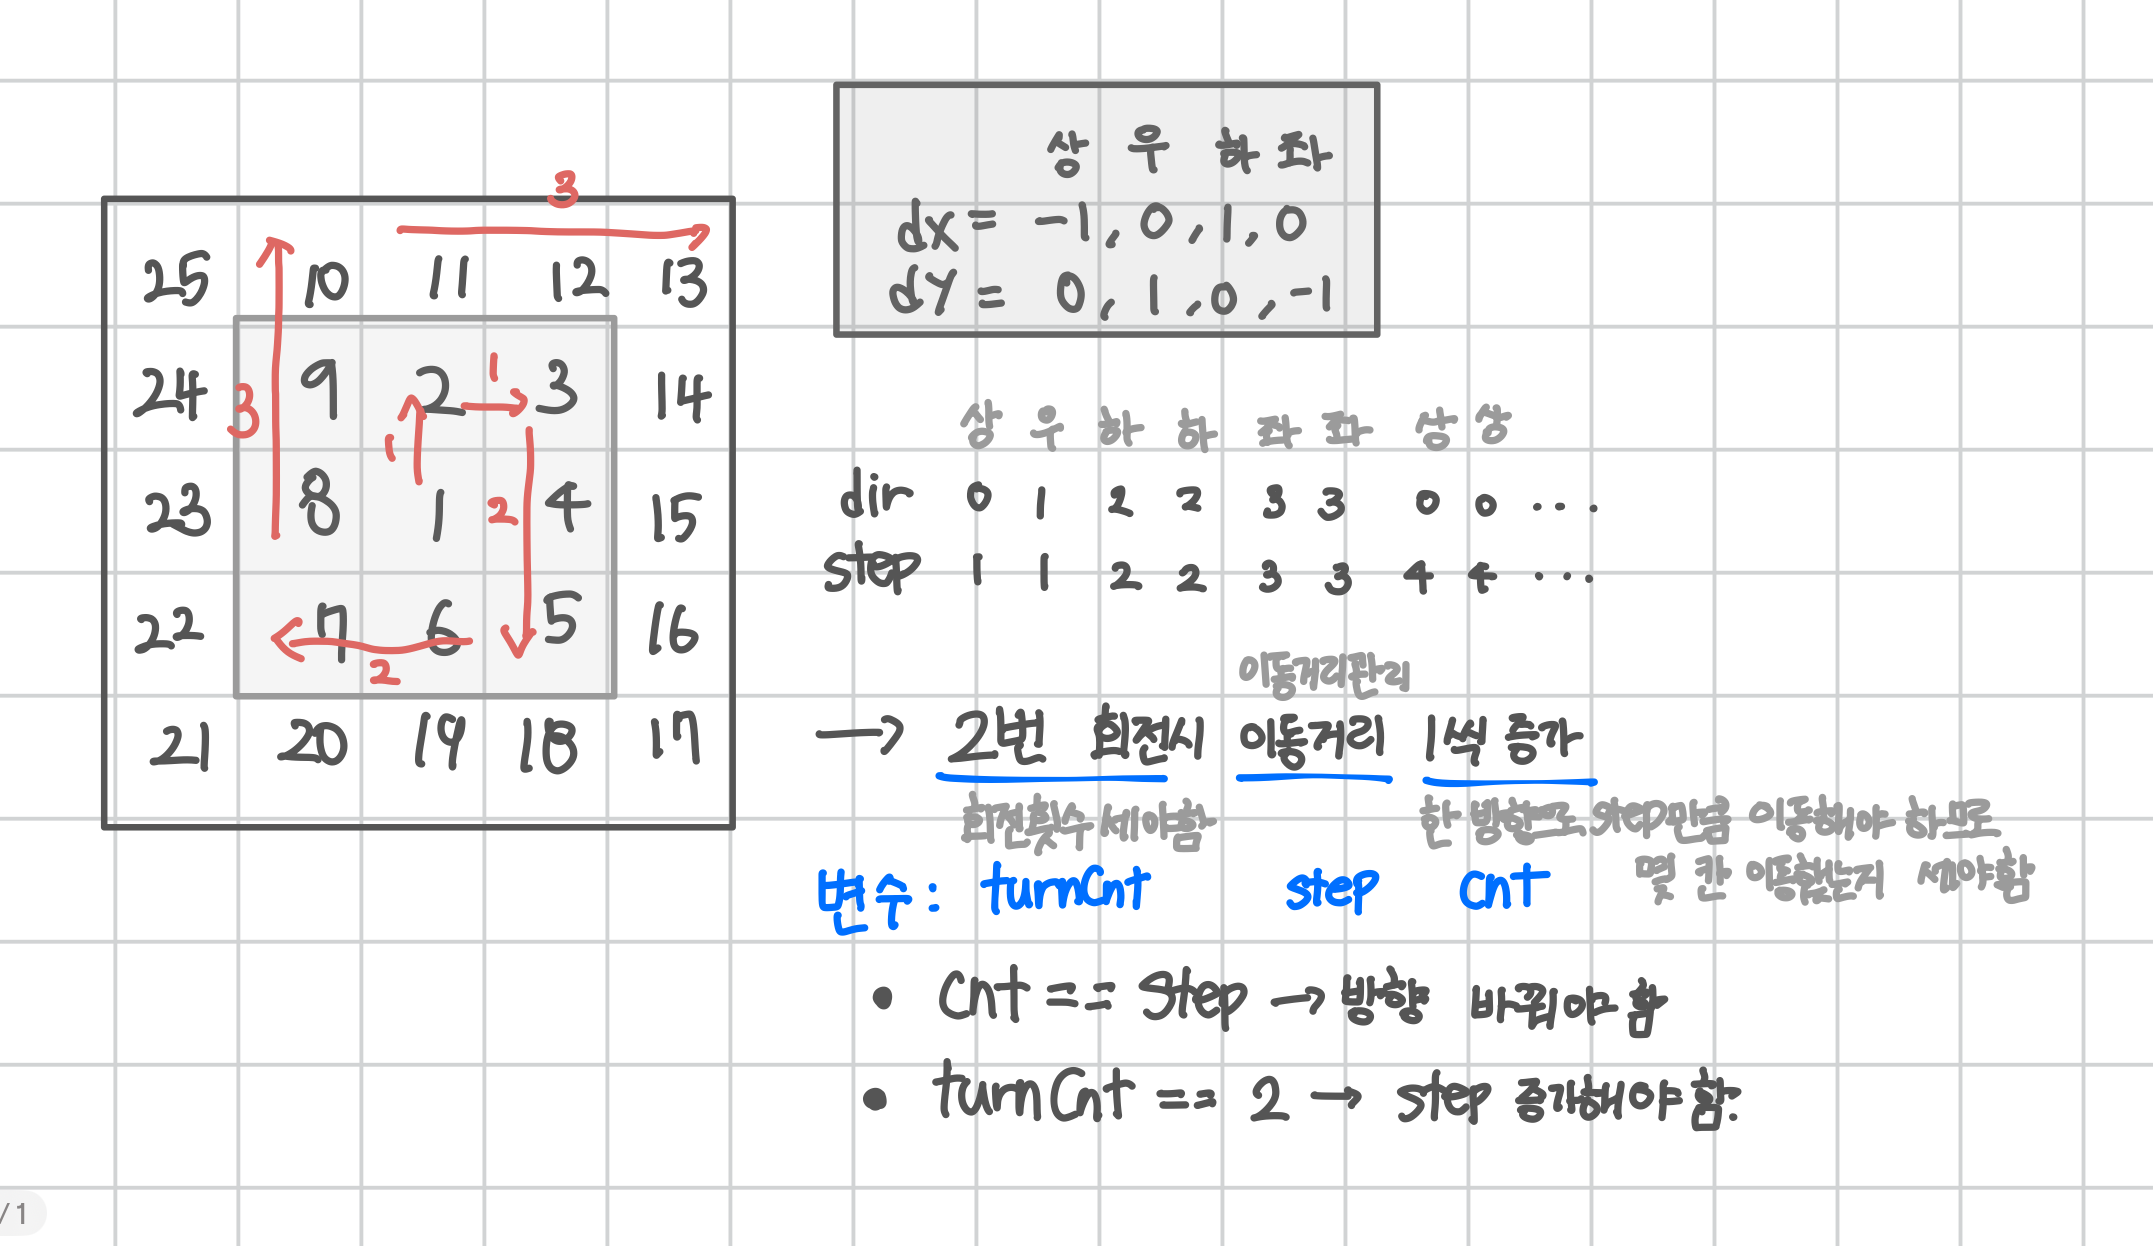 3
25 10 11 12 13
24 3 9 2 1 3 14
1
23 8 1 2 4 15
22 7 6 5 16
2
21 20 19 18 17
상 우 하 좌
dx = -1, 0, 1, 0
dy = 0, 1, 0, -1
상 우 하 하 좌 좌 상 상
dir 0 1 2 2 3 3 0 0 ...
step 1 1 2 2 3 3 4 4 ...
이동거리관리
→ 2번 회전시 이동거리 1씩 증가
회전횟수 세야함 한 방향으로 step만큼 이동해야 하므로
몇 칸 이동했는지 세야함
변수: turnCnt step cnt
• cnt == step → 방향 바꿔야 함
• turnCnt == 2 → step 증가해야 함.
/1